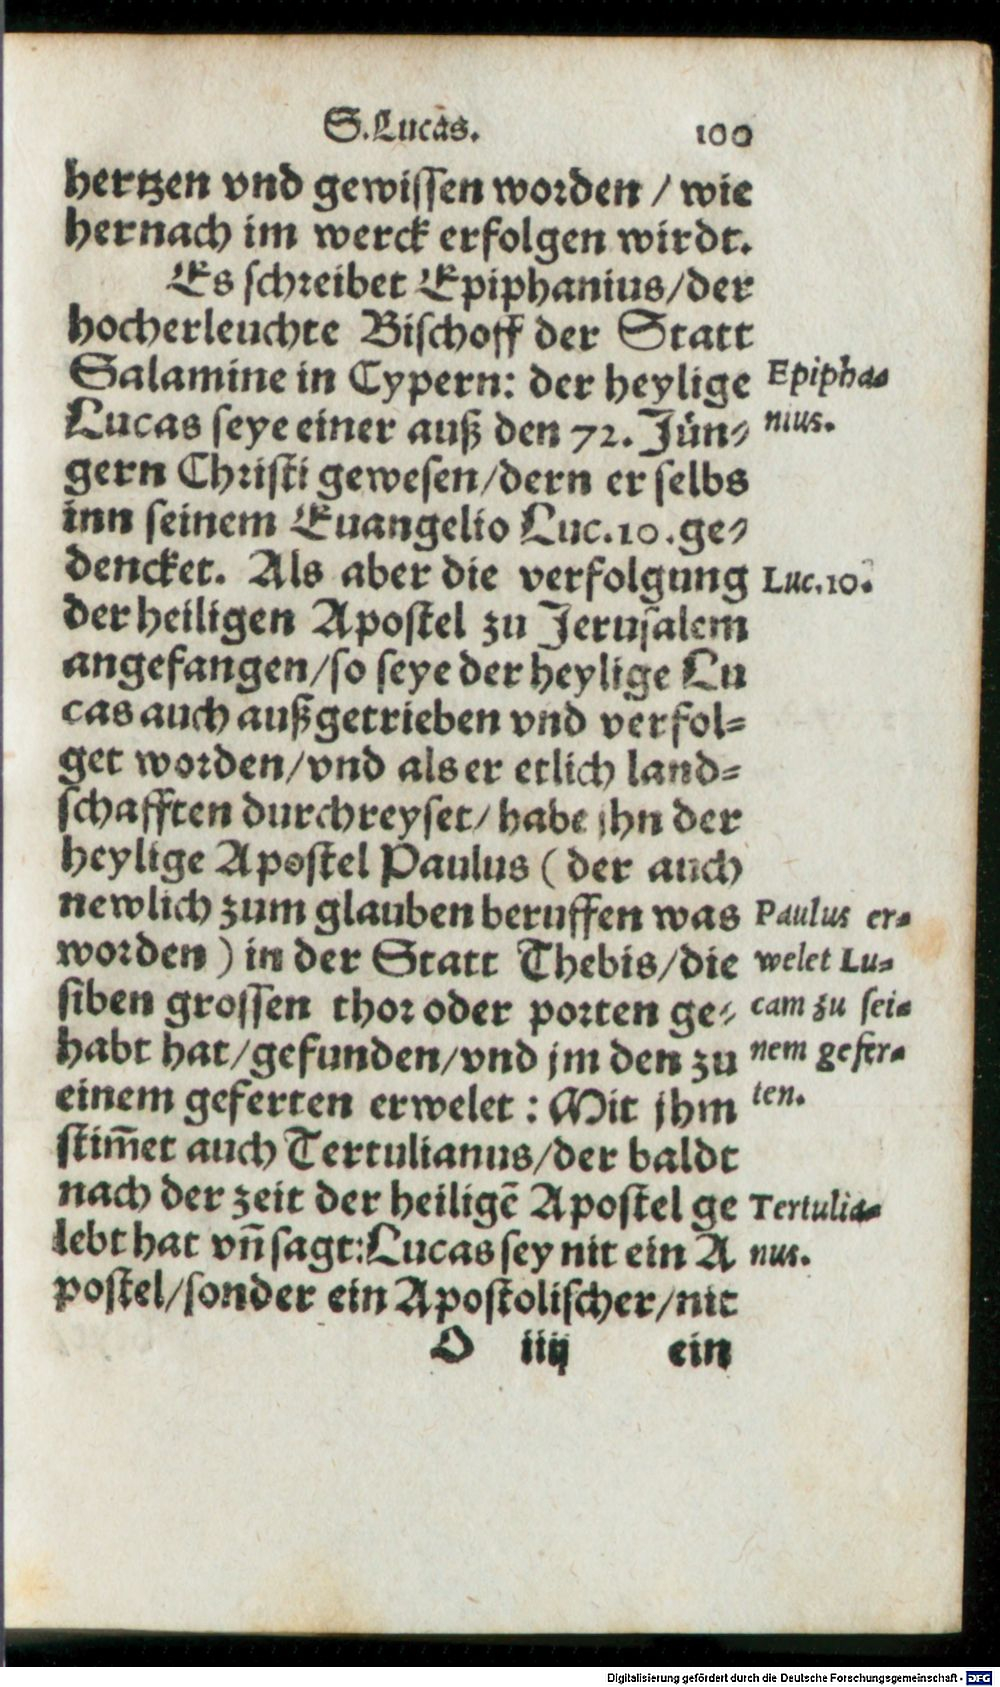 S. Lucas. 100
hertzen vnd gewissen worden / wie
hernach im werck erfolgen wirdt.
Es schreibet Epiphanius/der
hocherleuchte Bischoff der Statt
Salamine in Cypern: der heylige
Epipha-
Lucas seye einer auß den 72. Jün-
nius.
gern Christi gewesen/dern er selbs
inn seinem Euangelio Luc.10.ge-
dencket. Als aber die verfolgung
Luc.10.
der heiligen Apostel zu Jerusalem
angefangen/so seye der heylige Lu
cas auch außgetrieben vnd verfol-
get worden/vnd als er etlich land-
schafften durchreyset/habe jhn der
heylige Apostel Paulus (der auch
newlich zum glauben beruffen was
Paulus er-
worden) in der Statt Thebis/die
welet Lu-
siben grossen thor oder porten ge-
cam zu sei-
habt hat/gefunden/vnd jm den zu
nem gefer-
einem geferten erwelet: Mit jhm
ten.
stim̃et auch Tertulianus/der baldt
nach der zeit der heiligẽ Apostel ge
Tertulia-
lebt hat vñ sagt: Lucas sey nit ein A
nus.
postel/sonder ein Apostolischer/nit
O iiij ein
Digitalisierung gefördert durch die Deutsche Forschungsgemeinschaft - DFG